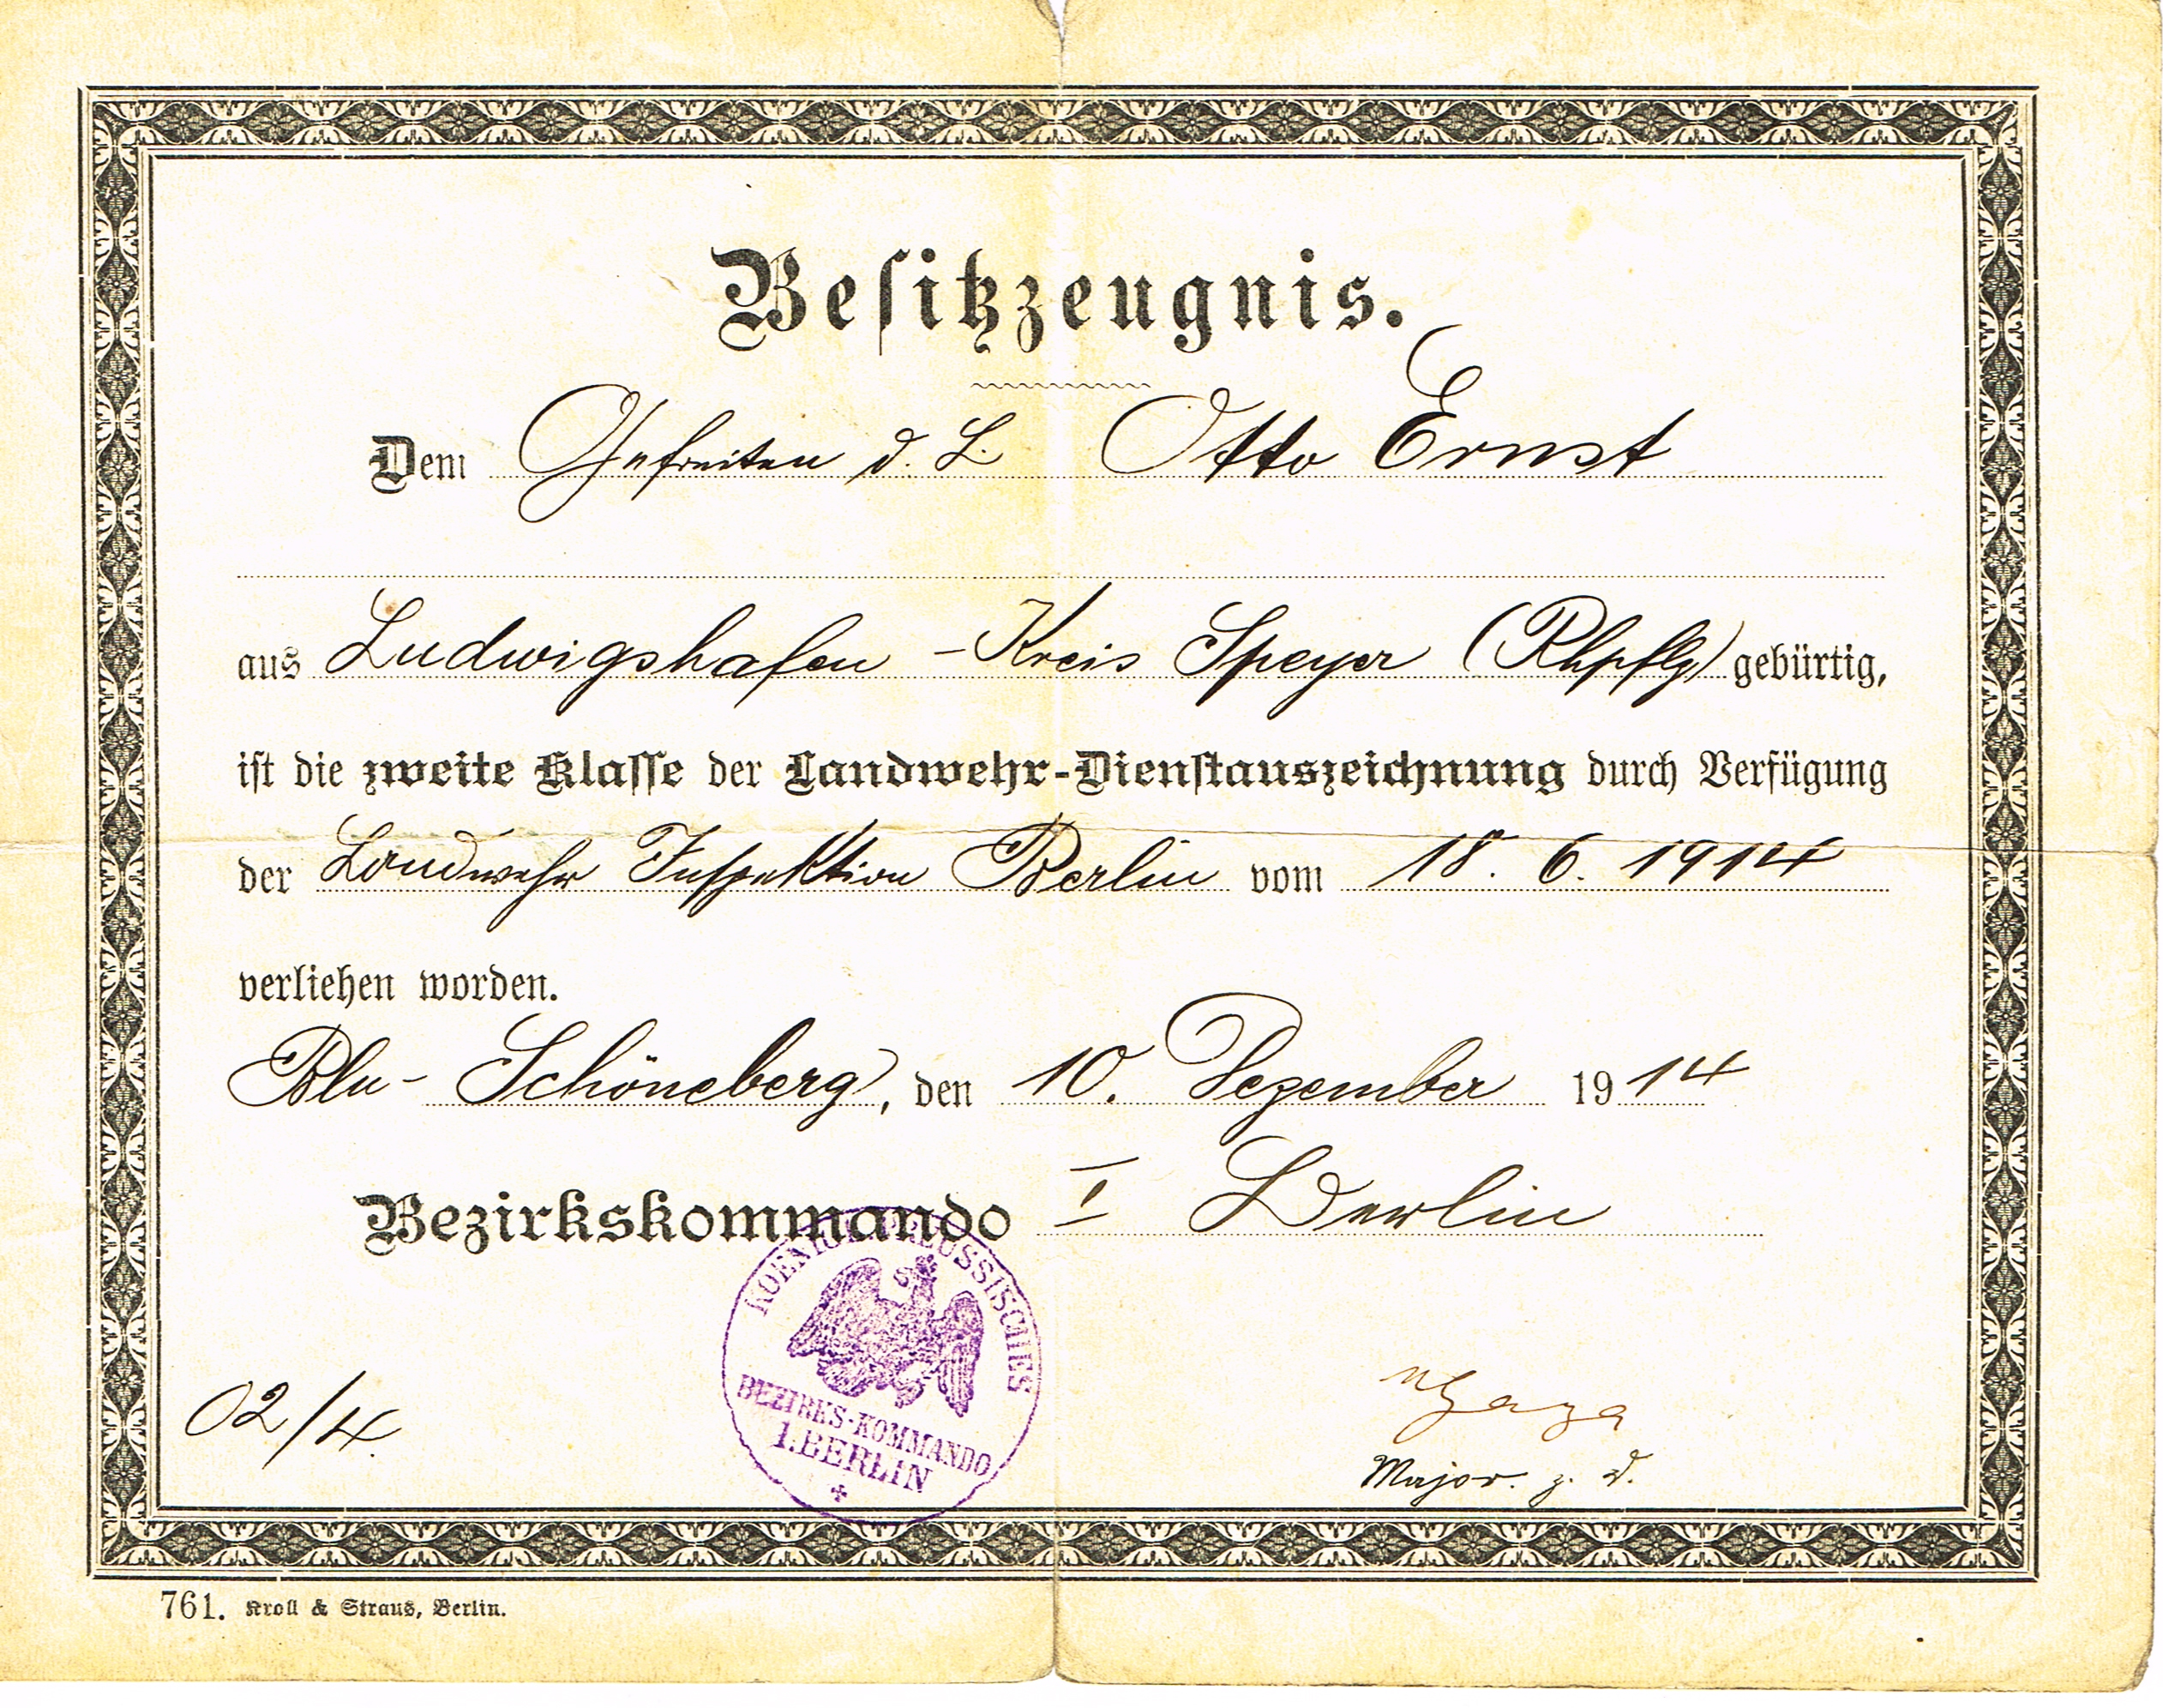 Besitzzeugnis.
Dem Gefreiten d. L. Otto Ernst
aus Ludwigshafen - Kreis Speyer (Rhpflz) gebürtig,
ist die zweite Klasse der Landwehr-Dienstauszeichnung durch Verfügung
der Landwehr Inspektion Berlin vom 18. 6. 1914
verliehen worden.
Bln - Schöneberg, den 10. Dezember 1914
Bezirkskommando I Berlin
KOENIGL. PREUSSISCHES
BEZIRKS-KOMMANDO
I. BERLIN
02/4.
Major. z. D.
761. Kroll & Straus, Berlin.